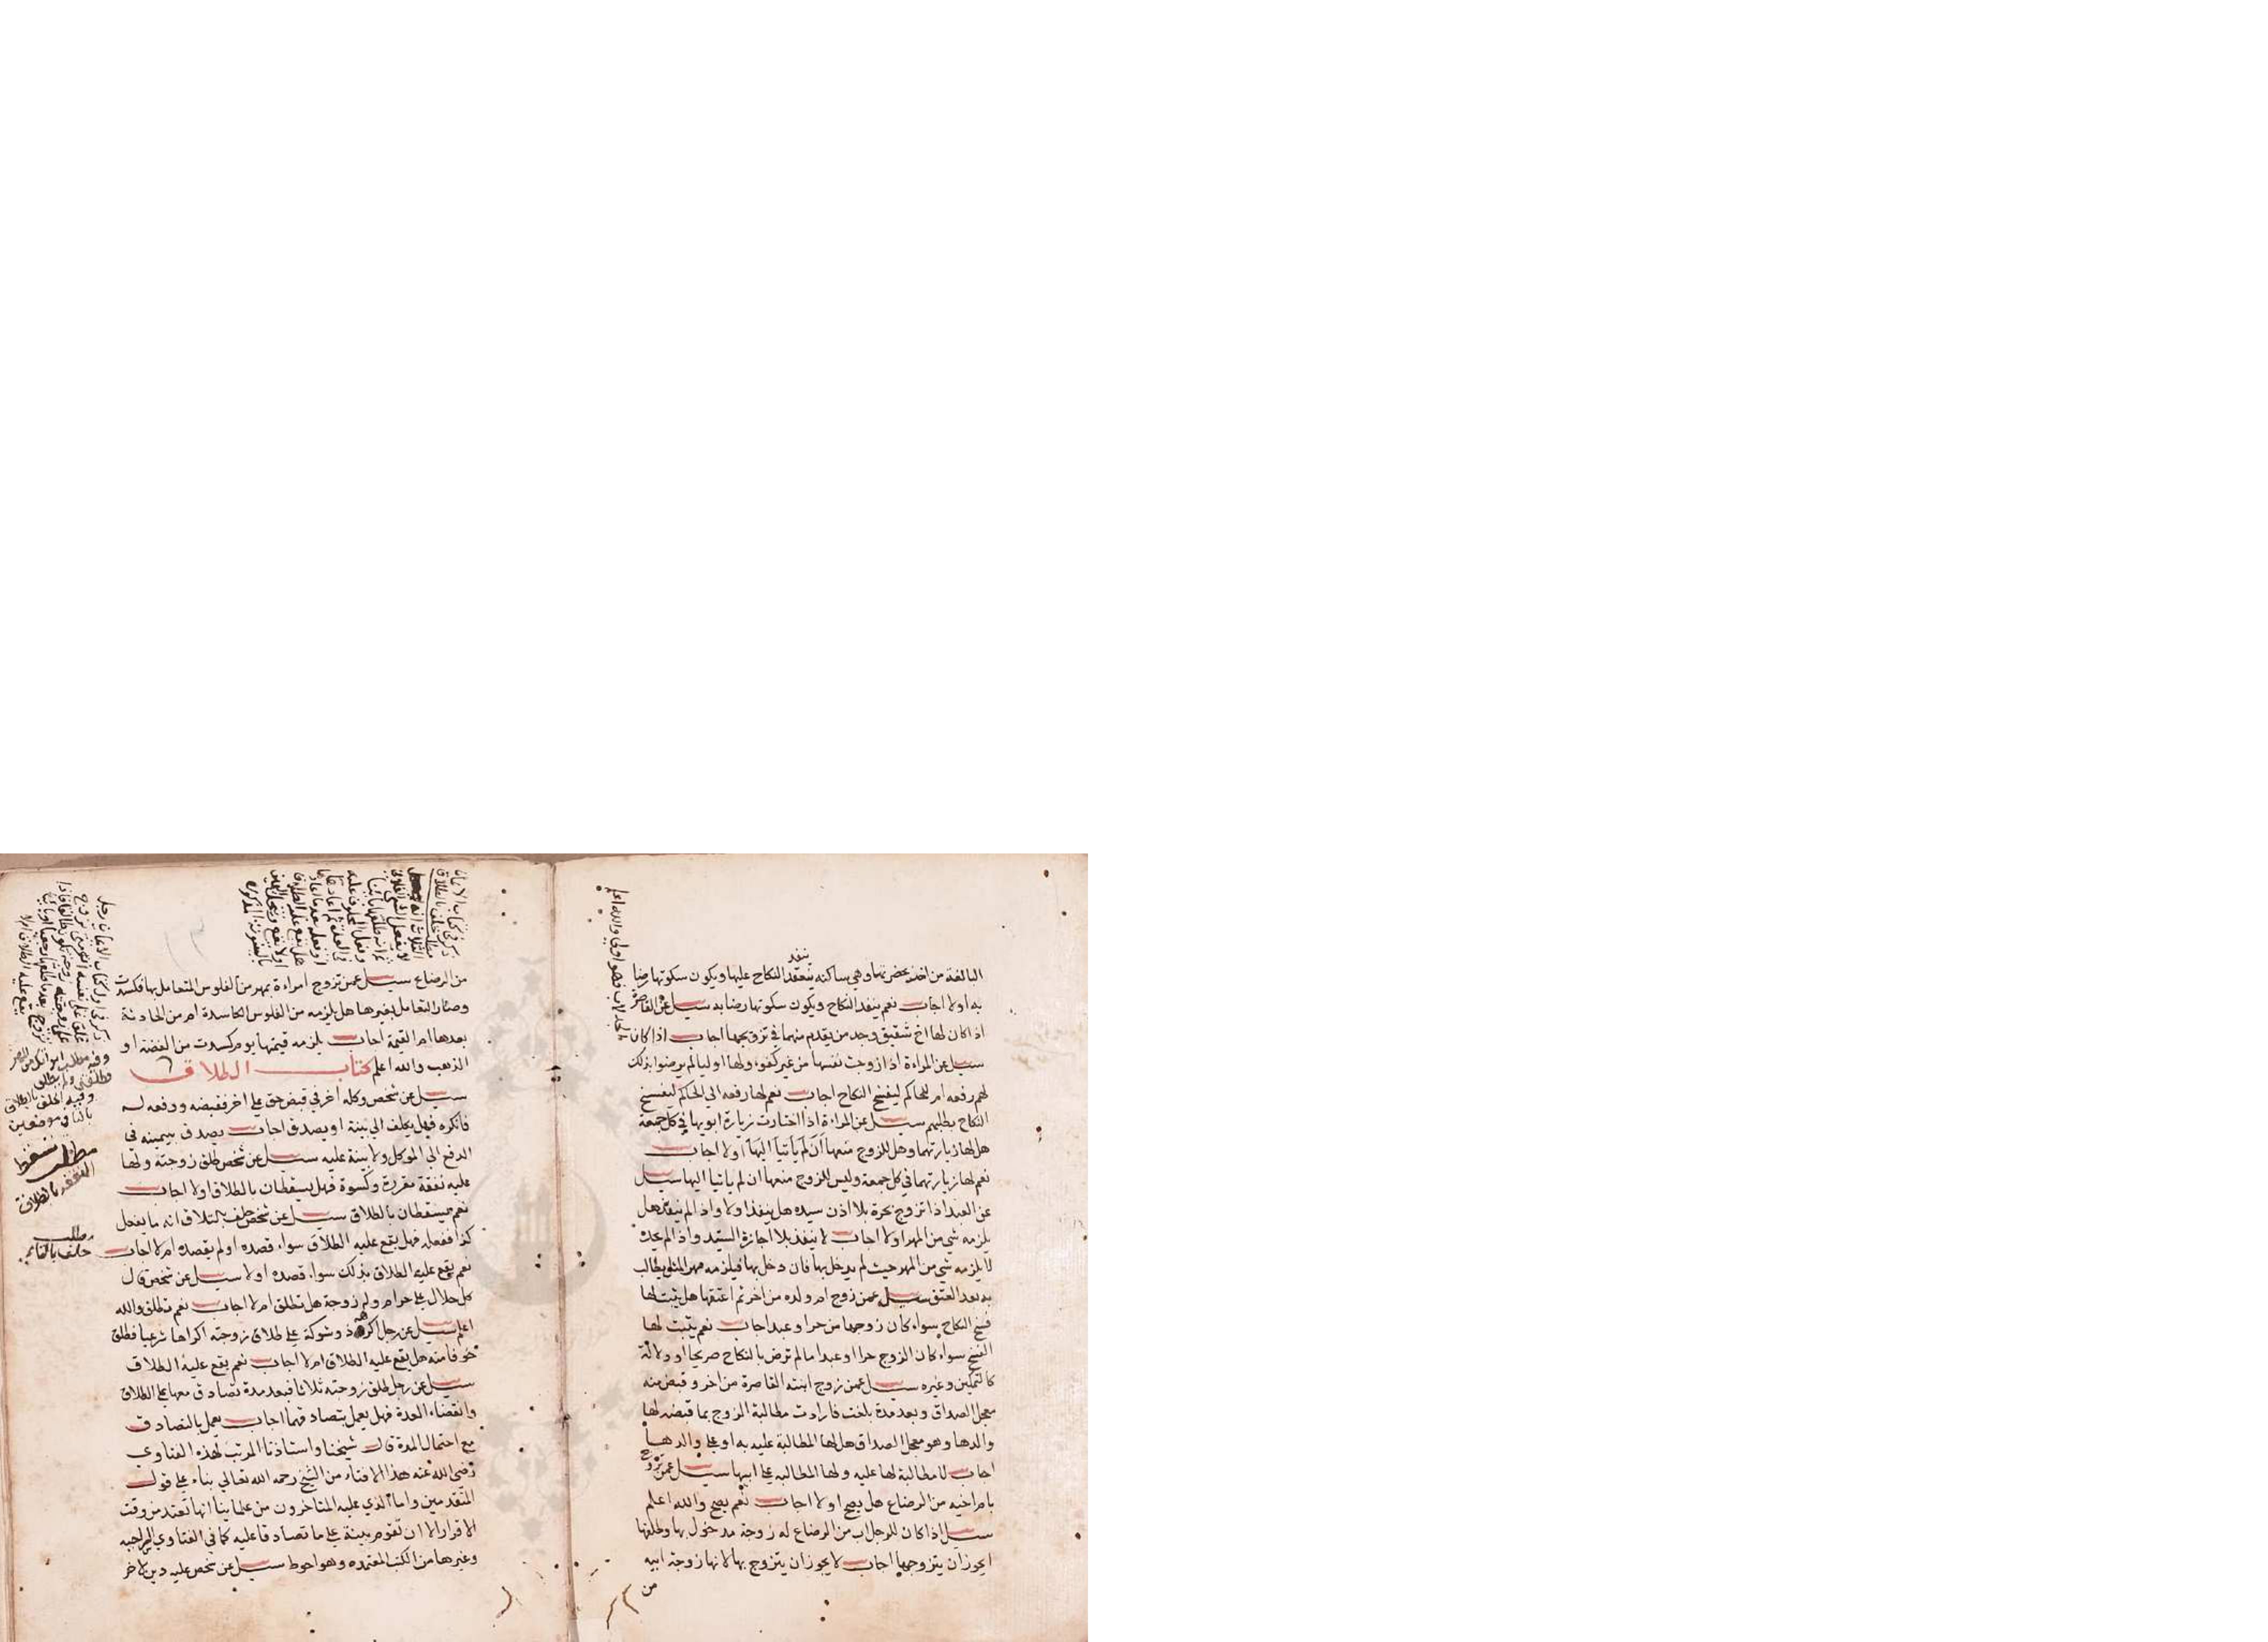 البالغة من احد بحضرتها وهي ساكنه ينعقد النكاح عليها ويكون سكوتها رضا
ينفذ
به اولا اجاب نعم ينفذ النكاح ويكون سكوتها رضا به سيل عن القاصرة
اذا كان لها اخ شقيق وجد من يقدم منهما في تزويجها اجاب اذا كان
لها جد لاب فهو اولي والله اعلم
سيل عن المراة اذا زوجت نفسها من غير كفوء ولها اوليا لم يرضوا بذلك
لهم رفعه ام للحاكم ليفسخ النكاح اجاب نعم لها رفعه الي الحاكم ليفسخ
النكاح بطلبهم سيل عن المراة اذا اختارت زيارة ابويها في كل جمعة
هل لها زيارتهما وهل للزوج منعها ان لم ياتيا اليها اولا اجاب
نعم لها زيارتهما في كل جمعة وليس للزوج منعها ان لم ياتيا اليها سيل
عن العبد اذا تزوج بحرة بلا اذن سيده هل ينفذ اولا واذا لم ينفذ هل
يلزمه شي من المهر اولا اجاب لا ينفذ بلا اجازة السيد واذا لم يجزه
لا يلزمه شي من المهر حيث لم يدخل بها فان دخل بها فيلزمه مهر المثل يطالب
به بعد العتق سيل عمن زوج ام ولده من اخر ثم اعتقها هل يثبت لها
فسخ النكاح سواء كان زوجها من حر او عبد اجاب نعم يثبت لها
الفسخ سواء كان الزوج حرا او عبدا ما لم ترض بالنكاح صريحا او دلالة
كالتمكين وغيره سيل عمن زوج ابنته القاصرة من اخر وقبض منه
معجل الصداق وبعد مدة بلغت فارادت مطالبة الزوج بما قبضه لها
والدها وهو معجل الصداق هل لها المطالبة عليه به او علي والدها
اجاب لا مطالبة لها عليه ولها المطالبه علي ابيها سيل عمن تزوج
بام اخيه من الرضاع هل يصح اولا اجاب نعم يصح والله اعلم
سيل اذا كان للرجل اب من الرضاع له زوجة مدخول بها وطلقها
ايجوز ان يتزوجها اجاب لا يجوز ان يتزوج بها لانها زوجة ابيه
من
من الرضاع سيل عمن تزوج امراءة بمهر من الفلوس المتعامل بها فكسدت
وصار التعامل بغيرها هل يلزمه من الفلوس الكاسدة ام من الحادثة
بعدها ام القيمة اجاب يلزمه قيمتها يوم كسدت من الفضة او
الذهب والله اعلم كتاب الطلاق
سيل عن شخص وكله اخر في قبض حق علي اخر فقبضه ودفعه له
فانكره فهل يحلف الي بينة او يصدق اجاب يصدق بيمينه في
الدفع الي الموكل ولا بينة عليه سيل عن شخص طلق زوجته ولها
عليه نفقة مقررة وكسوة فهل يسقطان بالطلاق اولا اجاب
نعم يسقطان بالطلاق سيل عن شخص حلف بالتلاق انه ما يفعل
كذا ففعله فهل يقع عليه الطلاق سواء قصده اولم يقصده ام لا اجاب
نعم يقع عليه الطلاق بذلك سواء قصده اولا سيل عن شخص قال
كل حلال علي حرام وله زوجة هل تطلق ام لا اجاب نعم تطلق والله
اعلم سيل عن رجل اكرهه ذو شوكة علي طلاق زوجته اكراها شرعيا فطلق
خوفا منه هل يقع عليه الطلاق ام لا اجاب نعم يقع عليه الطلاق
سيل عن رجل طلق زوجته ثلاثا فبعد مدة تصادق معها علي الطلاق
وانقضاء العدة فهل يعمل بتصادقهما اجاب يعمل بالتصادق
مع احتمال المدة قال شيخنا واستاذنا المرتب لهذه الفتاوي
رضي الله عنه هذا الافتاء من الشيخ رحمه الله تعالي بناء علي قول
المتقدمين واما الذي عليه المتاخرون من علماينا انها تعتد من وقت
الاقرار الا ان تقوم بينة علي ما تصادقا عليه كما في الفتاوي
وغيرها من الكتب المعتمده وهو احوط سيل عن شخص عليه دين لاخر
ذكر في كتاب الايمان
مطلب حلف بالطلاق
الثلاث انه
ذكر في اول كتاب الايمان رجل
يقع عليه الطلاق ام لا
مطلب سقوط
النفقه بالطلاق
مطلب
حلف بالطلاق